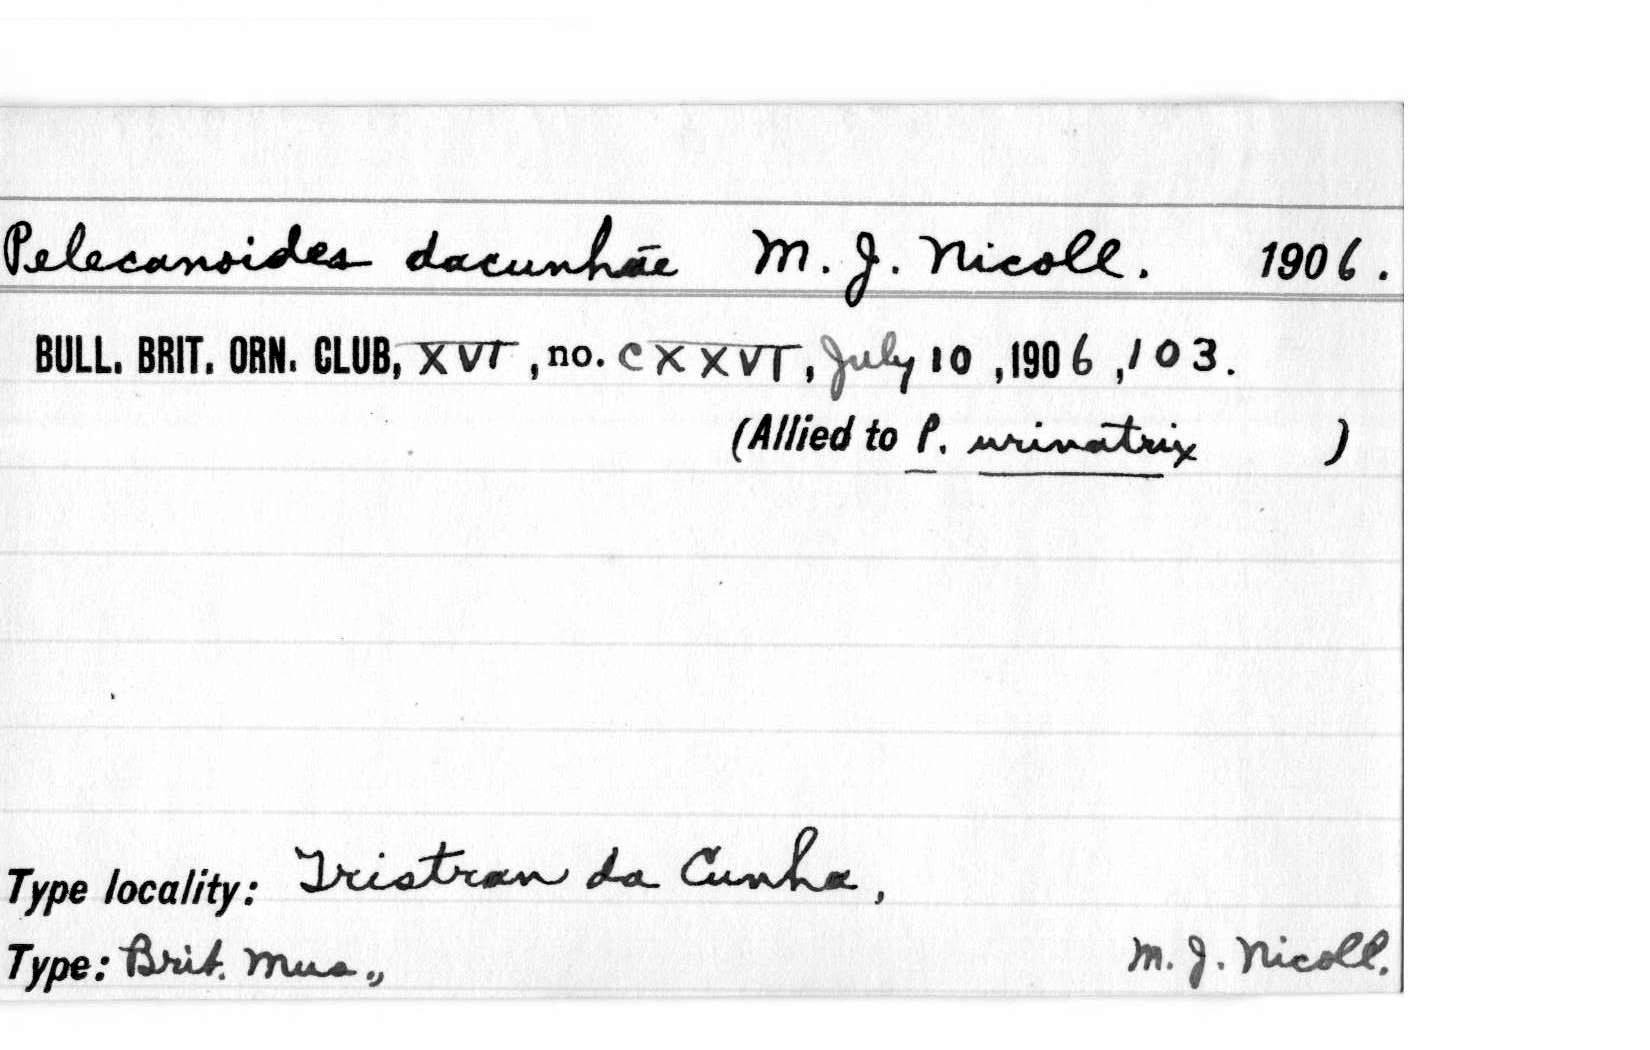 Pelecanoides dacunhae M. J. Nicoll. 1906.
BULL. BRIT. ORN. CLUB, XVI, no. CXXVI, July 10, 1906, 103.
(Allied to P. urinatrix )
Type locality: Tristran da Cunha,
Type: Brit. Mus., M. J. Nicoll.